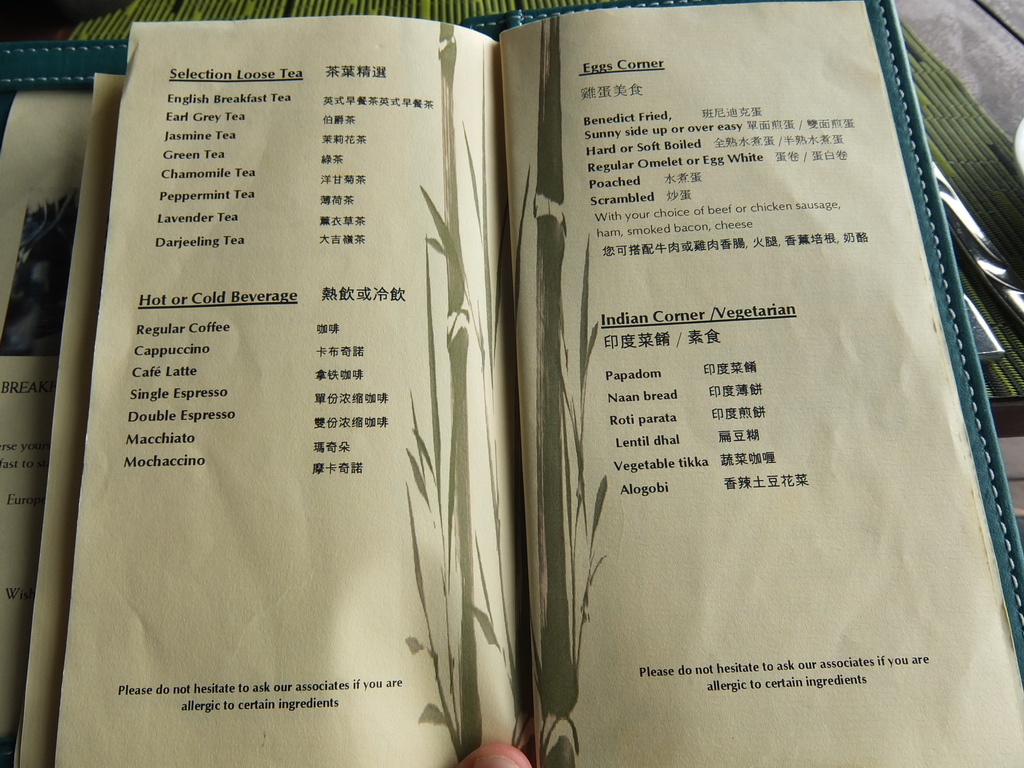 Selection Loose Tea 茶葉精選
English Breakfast Tea 英式早餐茶英式早餐茶
Earl Grey Tea 伯爵茶
Jasmine Tea 茉莉花茶
Green Tea 綠茶
Chamomile Tea 洋甘菊茶
Peppermint Tea 薄荷茶
Lavender Tea 薰衣草茶
Darjeeling Tea 大吉嶺茶
Hot or Cold Beverage 熱飲或冷飲
Regular Coffee 咖啡
Cappuccino 卡布奇諾
Café Latte 拿铁咖啡
Single Espresso 單份浓缩咖啡
Double Espresso 雙份浓缩咖啡
Macchiato 瑪奇朵
Mochaccino 摩卡奇諾
Please do not hesitate to ask our associates if you are
allergic to certain ingredients
Eggs Corner
雞蛋美食
Benedict Fried, 班尼迪克蛋
Sunny side up or over easy 單面煎蛋 / 雙面煎蛋
Hard or Soft Boiled 全熟水煮蛋 /半熟水煮蛋
Regular Omelet or Egg White 蛋卷 / 蛋白卷
Poached 水煮蛋
Scrambled 炒蛋
With your choice of beef or chicken sausage,
ham, smoked bacon, cheese
您可搭配牛肉或雞肉香腸, 火腿, 香薰培根, 奶酪
Indian Corner /Vegetarian
印度菜餚 / 素食
Papadom 印度菜餚
Naan bread 印度薄餅
Roti parata 印度煎餅
Lentil dhal 扁豆糊
Vegetable tikka 蔬菜咖喱
Alogobi 香辣土豆花菜
Please do not hesitate to ask our associates if you are
allergic to certain ingredients